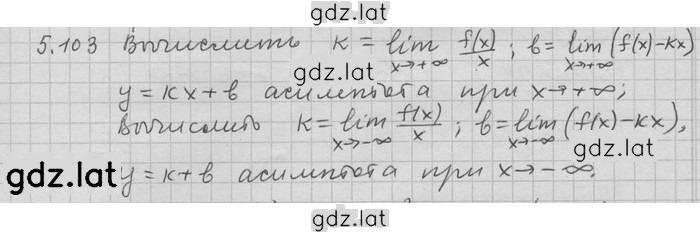 gdz.lat
5.103 Вычислить k = lim x→+∞ f(x)/x ; b = lim x→+∞ (f(x)-kx)
gdz.lat
y = kx + b асимптота при x→+∞;
Вычислить k = lim x→-∞ f(x)/x ; b = lim x→-∞ (f(x)-kx),
gdz.lat
gdz.lat y = k + b асимптота при x→-∞.
gdz.lat